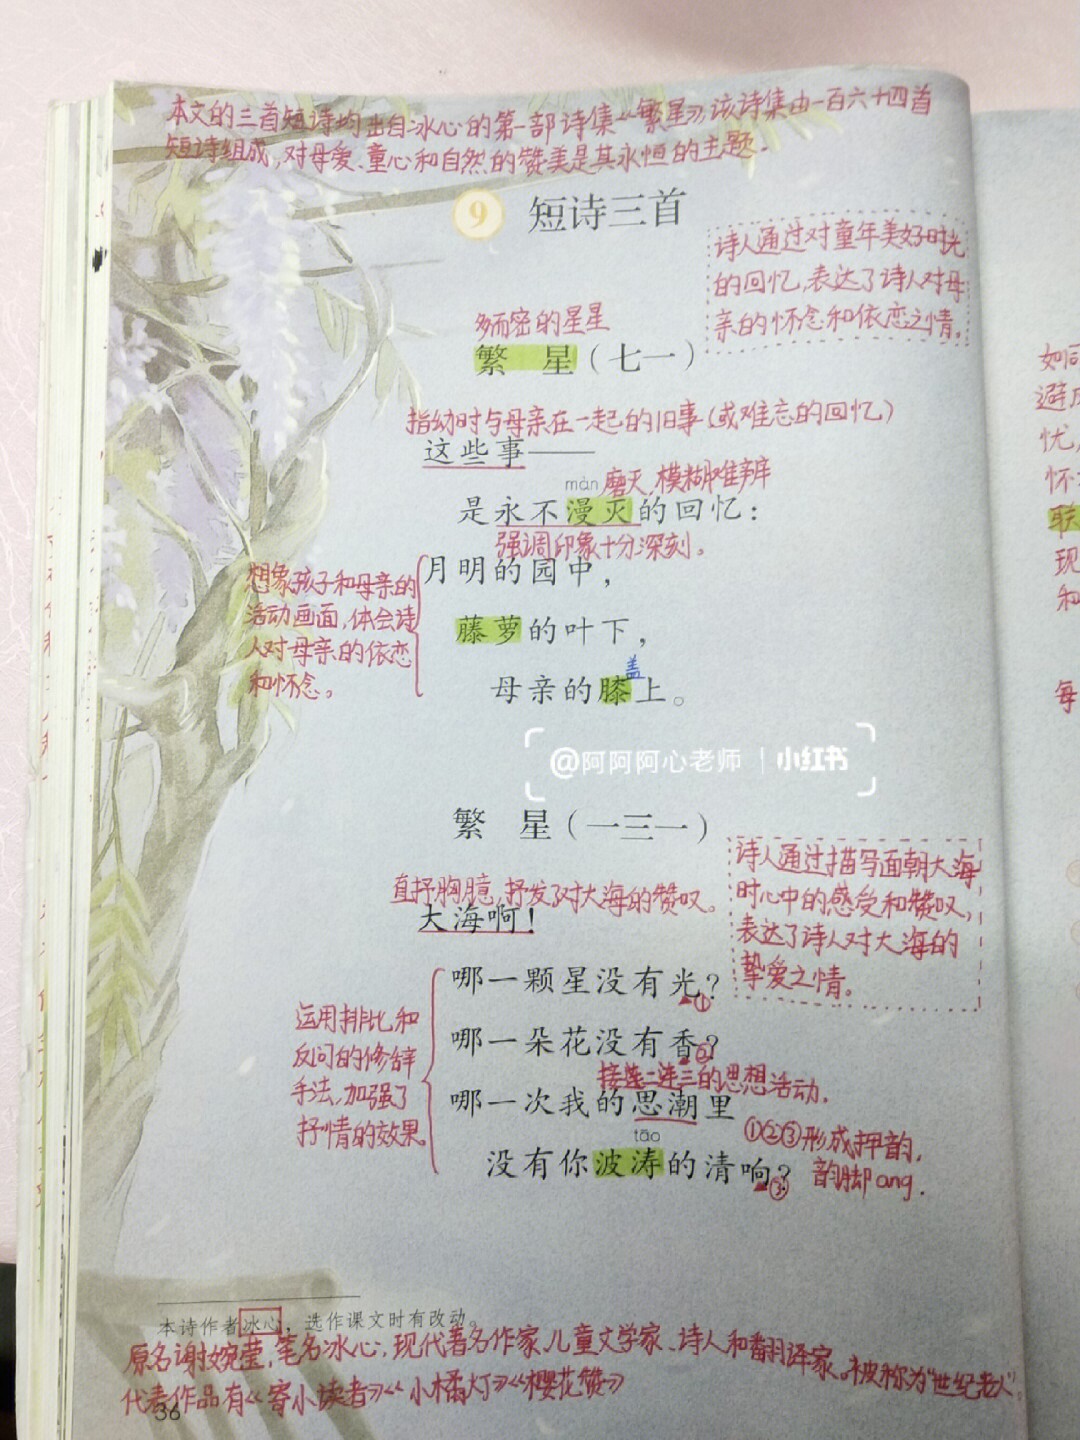 本文的三首短诗均出自冰心的第一部诗集《繁星》,该诗集由一百六十四首
短诗组成,对母爱、童心和自然的赞美是其永恒的主题.
9 短诗三首
诗人通过对童年美好时光
的回忆,表达了诗人对母
亲的怀念和依恋之情。
多而密的星星
繁 星(七一)
指幼时与母亲在一起的旧事(或难忘的回忆)
这些事——
màn 磨灭,模糊难辨
是永不漫灭的回忆:
强调印象十分深刻。
月明的园中,
藤萝的叶下,
盖
母亲的膝上。
想象孩子和母亲的
活动画面,体会诗
人对母亲的依恋
和怀念。
@阿阿阿心老师 | 小红书
繁 星(一三一)
诗人通过描写面朝大海
时心中的感受和赞叹,
表达了诗人对大海的
挚爱之情。
直抒胸臆,抒发了对大海的赞叹。
大海啊!
哪一颗星没有光?
①
哪一朵花没有香?
②
接连二连三的思想活动.
哪一次我的思潮里
tāo
没有你波涛的清响?
③
运用排比和
反问的修辞
手法,加强了
抒情的效果.
①②③形成押韵,
韵脚ang.
本诗作者冰心,选作课文时有改动。
原名谢婉莹,笔名冰心,现代著名作家、儿童文学家、诗人和翻译家。被称为"世纪老人"。
代表作品有《寄小读者》《小橘灯》《樱花赞》
36
如同
避
忧,
怀
联
现
和
每